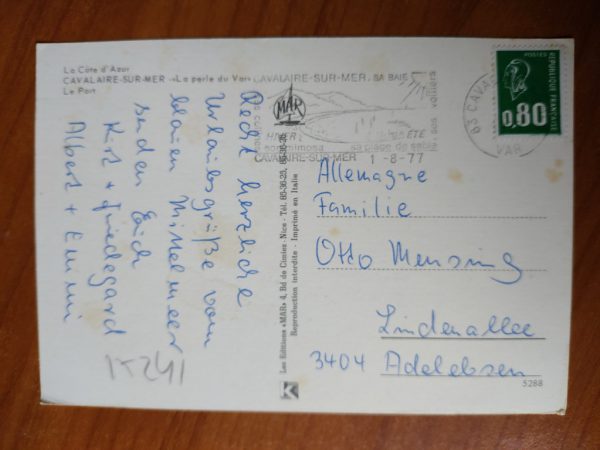 La Côte d'Azur
CAVALAIRE-SUR-MER "La perle du Var"
Le Port
CAVALAIRE-SUR-MER, SA BAIE
HIVER:
ETE
son mimosa
sa plage de sable
ses voiliers
CAVALAIRE-SUR-MER 1-8-77
83 CAVALAIRE
VAR
POSTES
REPUBLIQUE FRANCAISE
0,80
MAR
Recht herzliche
Urlaubsgrüße vom
blauen Mittelmeer
senden Euch
Kurt + Friedegard
Albert + Emmi
15241
Les Editions «MAR» 4, Bd de Cimiez - Nice - Tél. 85-36-23, 85-36-28
Reproduction interdite - Imprimé en Italie
K
Allemagne
Familie
Otto Mensing
Lindenallee
3404 Adelebsen
5288